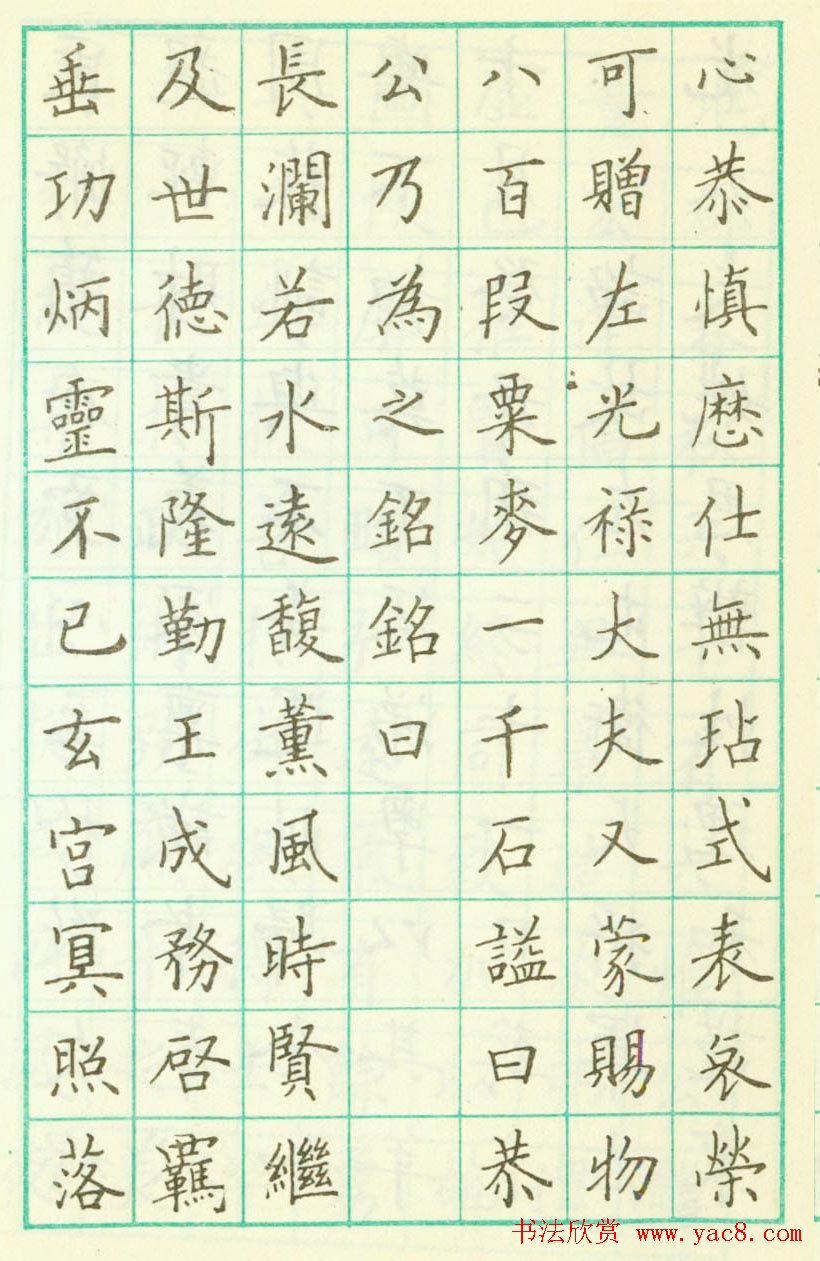 心恭慎歷仕無玷式表哀榮
可贈左光祿大夫又蒙賜物
八百段粟麥一千石謚曰恭
公乃為之銘銘曰
長瀾若水遠馥薫風時賢繼
及世德斯隆勤王成務啓羈
垂功炳靈不已玄宮冥照落
书法欣赏 www.yac8.com